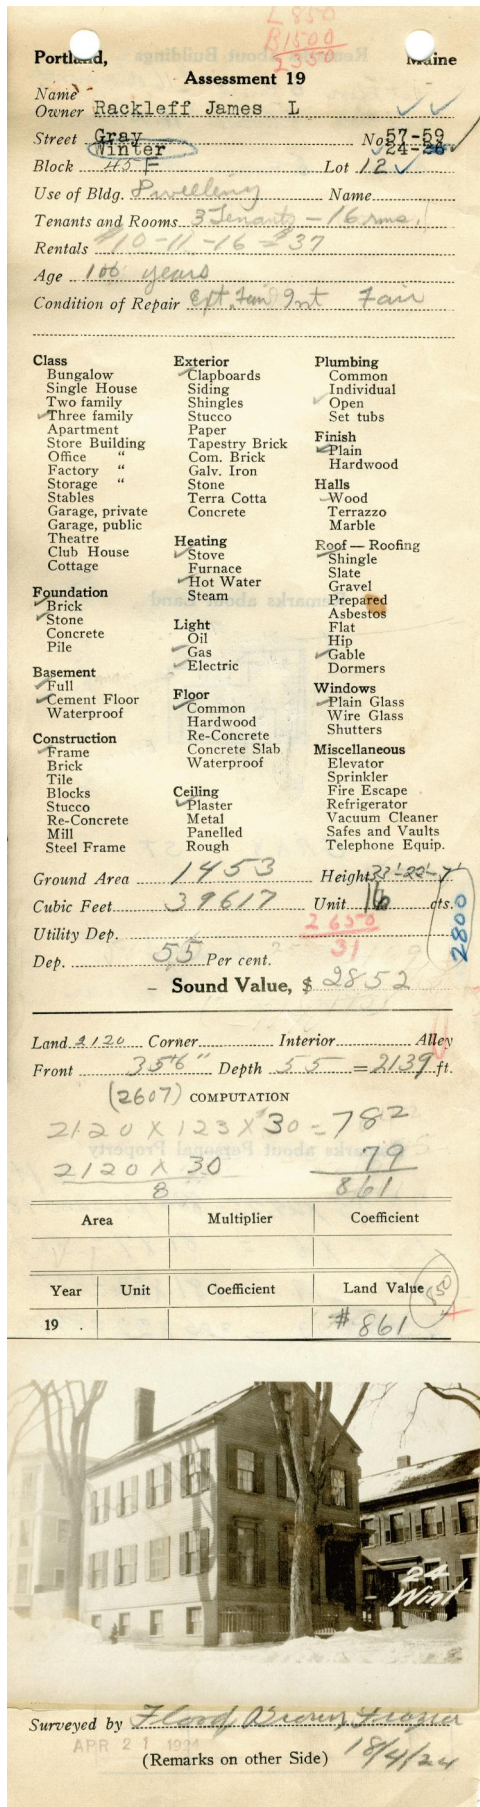 L 850
B 1500
2350
Portland, Maine
Assessment 19
Name
Owner Rackleff James L
Street Gray No 57-59
Winter 24-26
Block 45 F Lot 12
Use of Bldg. Dwelling Name
Tenants and Rooms 3 Tenants - 16 rms.
Rentals $10-11-16=$37
Age 100 years
Condition of Repair Ext. Fair Int Fair
Class
Bungalow
Single House
Two family
Three family
Apartment
Store Building
Office "
Factory "
Storage "
Stables
Garage, private
Garage, public
Theatre
Club House
Cottage
Foundation
Brick
Stone
Concrete
Pile
Basement
Full
Cement Floor
Waterproof
Construction
Frame
Brick
Tile
Blocks
Stucco
Re-Concrete
Mill
Steel Frame
Exterior
Clapboards
Siding
Shingles
Stucco
Paper
Tapestry Brick
Com. Brick
Galv. Iron
Stone
Terra Cotta
Concrete
Heating
Stove
Furnace
Hot Water
Steam
Light
Oil
Gas
Electric
Floor
Common
Hardwood
Re-Concrete
Concrete Slab
Waterproof
Ceiling
Plaster
Metal
Panelled
Rough
Plumbing
Common
Individual
Open
Set tubs
Finish
Plain
Hardwood
Halls
Wood
Terrazzo
Marble
Roof — Roofing
Shingle
Slate
Gravel
Prepared
Asbestos
Flat
Hip
Gable
Dormers
Windows
Plain Glass
Wire Glass
Shutters
Miscellaneous
Elevator
Sprinkler
Fire Escape
Refrigerator
Vacuum Cleaner
Safes and Vaults
Telephone Equip.
Ground Area 1453 Height 33'-22'-7'
Cubic Feet 39617 Unit 16 cts.
2650
31
2800
Utility Dep.
Dep. 55 Per cent.
Sound Value, $ 2852
Land 2120 Corner Interior Alley
Front 35'6" Depth 55 = 2139 ft.
(2607) COMPUTATION
2120 X 123 X $30 = 782
2120 X 30 79
8 861
Area Multiplier Coefficient
Year Unit Coefficient Land Value
850
19 . # 861
24
Wint
Surveyed by Flood, Brown, Frozier
APR 21 1924
(Remarks on other Side) 18/4/24